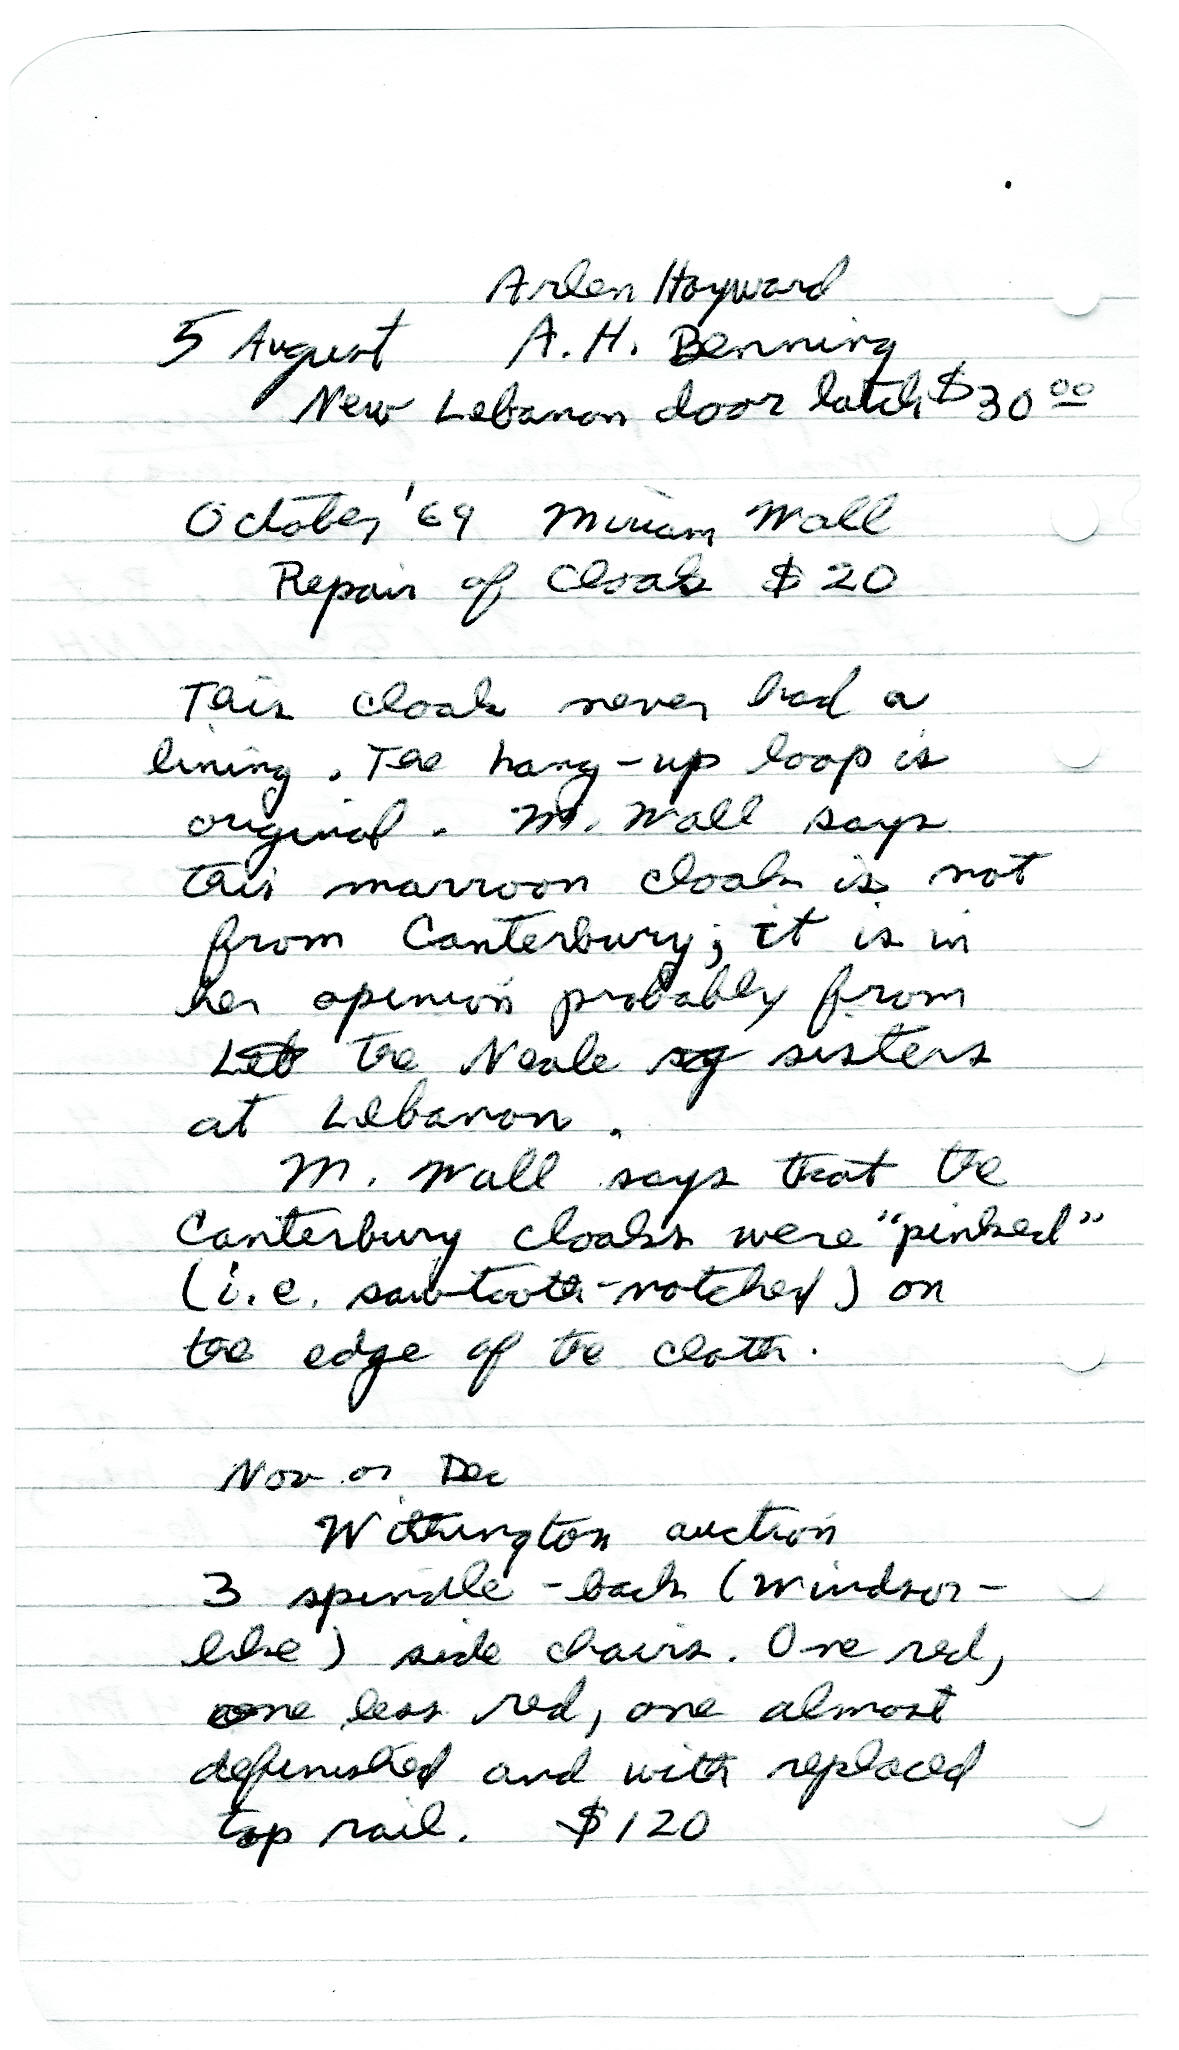 Arlen Hayward
5 August A. H. Benning
New Lebanon door latch $30 00
October '69 Miriam Wall
Repair of Cloak $20
This cloak never had a
lining. The hang-up loop is
original. M. Wall says
this marroon cloak is not
from Canterbury; it is in
her opinion probably from
Leb the Neale sg sisters
at Lebanon.
M. Wall says that the
Canterbury cloaks were "pinked"
(i.e. sawtooth-notched) on
the edge of the cloth.
Nov or Dec
Withington auction
3 spindle-back (Windsor-
like) side chairs. One red,
one less red, one almost
definished and with replaced
top rail. $120